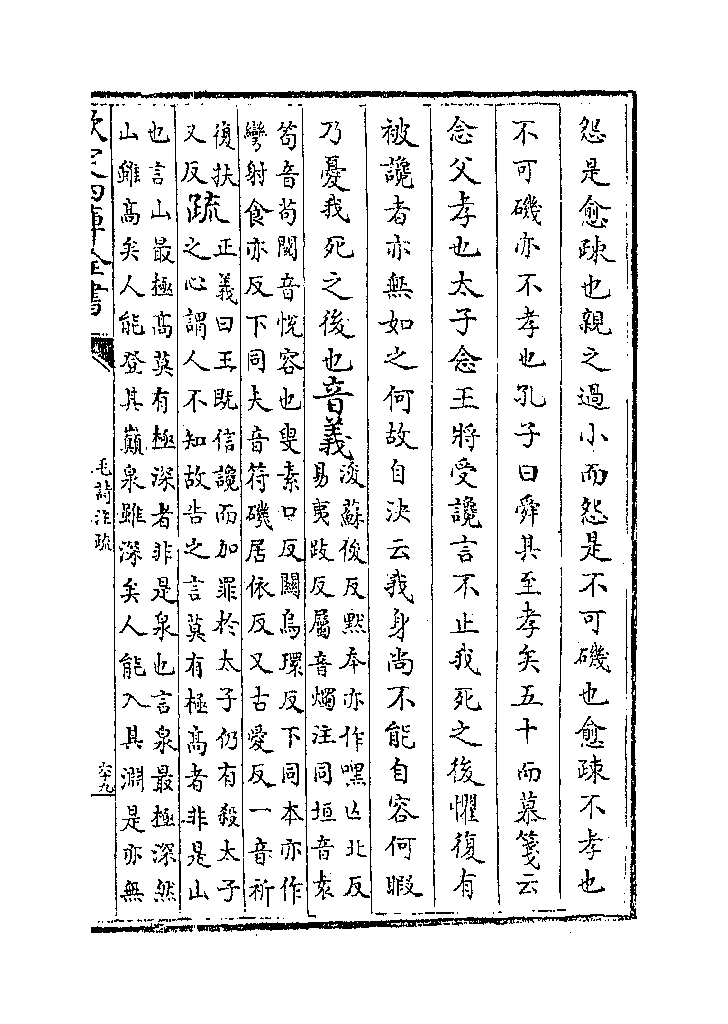 怨是愈疎也親之過小而怨是不可磯也愈疎不孝也
不可磯亦不孝也孔子曰舜其至孝矣五十而慕箋云
念父孝也太子念王將受讒言不止我死之後懼復有
被讒者亦無如之何故自決云我身尚不能自容何暇
乃憂我死之後也音義
浚蘇俊反黙本亦作嘿亡北反
易夷豉反屬音燭注同垣音袁
笱音苟閱音悅容也叟素口反關烏環反下同本亦作
彎射食亦反下同夫音符磯居依反又古愛反一音祈
復扶
又反
疏
正義曰王既信讒而加罪於太子仍有殺太子
之心謂人不知故告之言莫有極高者非是山
也言山最極高莫有極深者非是泉也言泉最極深然
山雖高矣人能登其巔泉雖深矣人能入其淵是亦無
欽定四庫全書
毛詩注疏
六十九